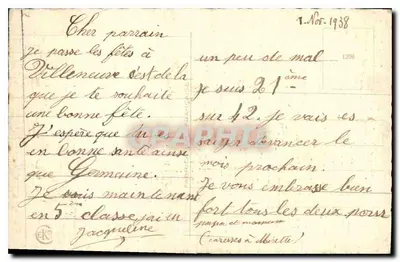 1 Nov. 1938
Cher parrain
je passe les fêtes à
Villeneuve c'est de la
que je te souhaite
une bonne fête.
J'espère que tu es
en bonne santé ainsi
que Germaine.
Je suis maintenant
en 5ème classe j'ai eu
Jacqueline
un peu de mal
je suis 21ème
sur 42. je vais es-
sayer d'avancer le
mois prochain.
Je vous embrasse bien
fort tous les deux pour
papa et maman
(caresses à Miette)